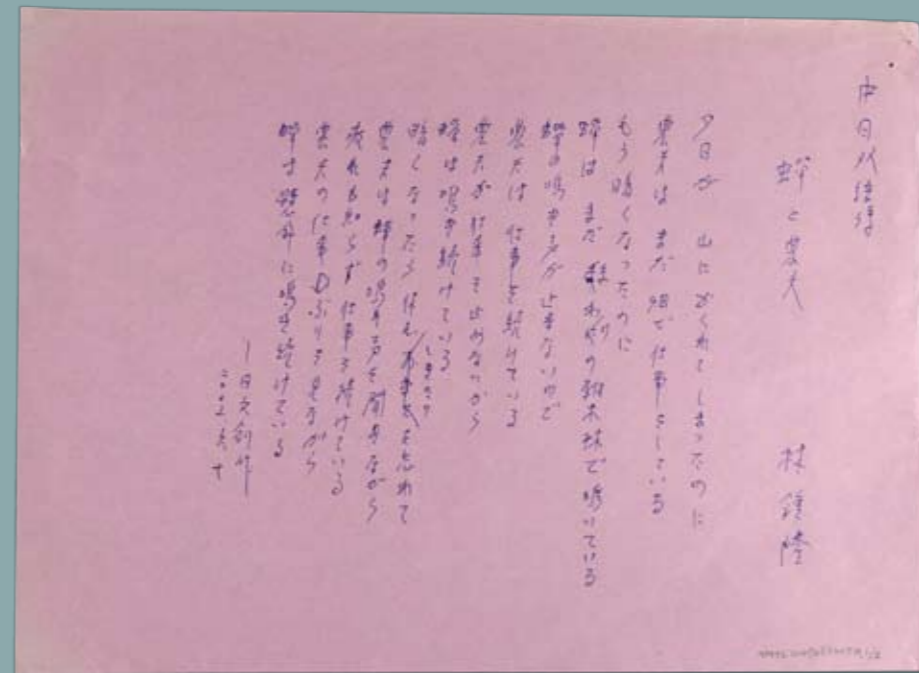 中日対訳詩
蝉と農夫　林鍾隆
夕日が 山にかくれて しまったのに
農夫は まだ 畑で仕事をしている
もう暗くなったのに
蝉は まだ まわりの雑木林で鳴いている
蝉の鳴き声が止まないので
農夫は 仕事を続けている
農夫が仕事を止めないから
蝉は鳴き続けている
暗くなったら 仕事を忘れて
農夫は 蝉の鳴き声を聞きながら
疲れも知らず 仕事を続けている
農夫の仕事ぶりを見ながら
蝉は懸命に鳴き続けている
—日文創作—